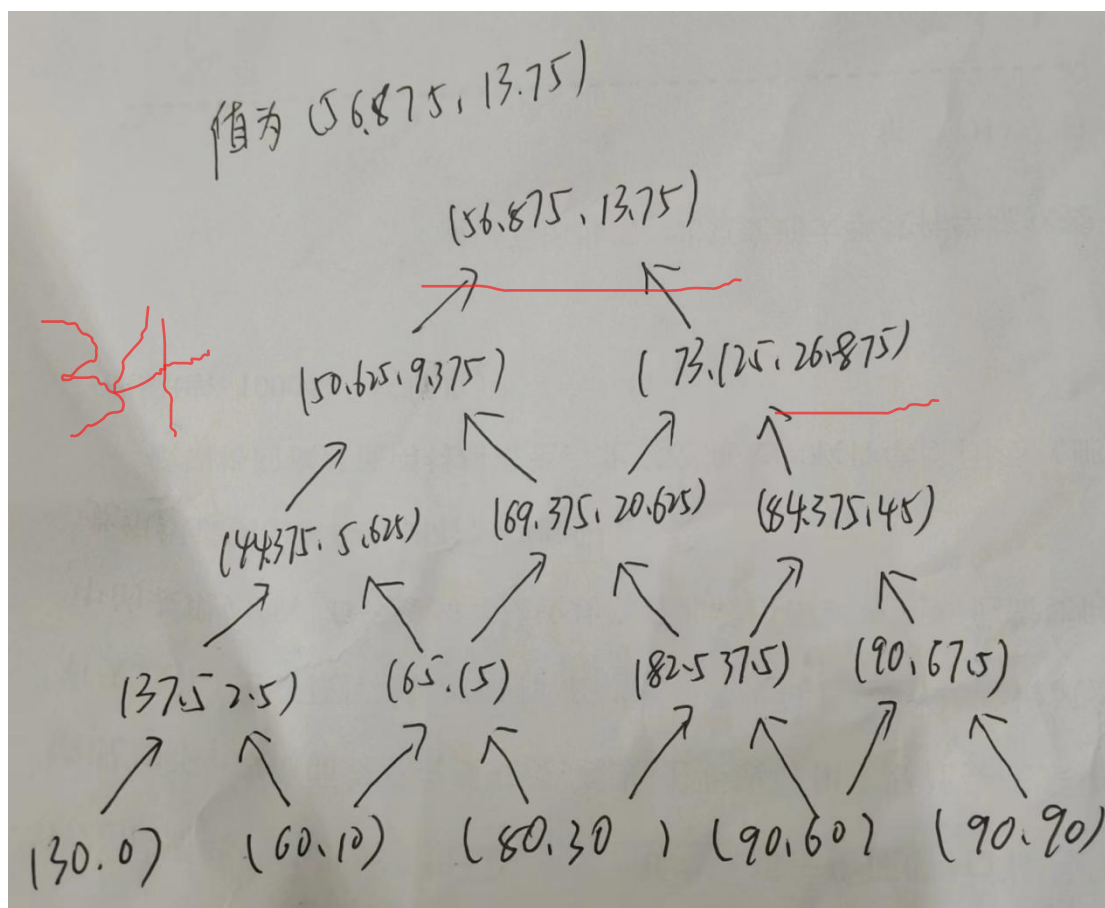 值为 (56.875, 13.75)
(56.875, 13.75)
(50.625, 9.375) (73.125, 26.875)
(44.375, 5.625) (69.375, 20.625) (84.375, 45)
(37.5 2.5) (65, 15) (82.5 37.5) (90, 67.5)
(30, 0) (60, 10) (80, 30) (90, 60) (90, 90)